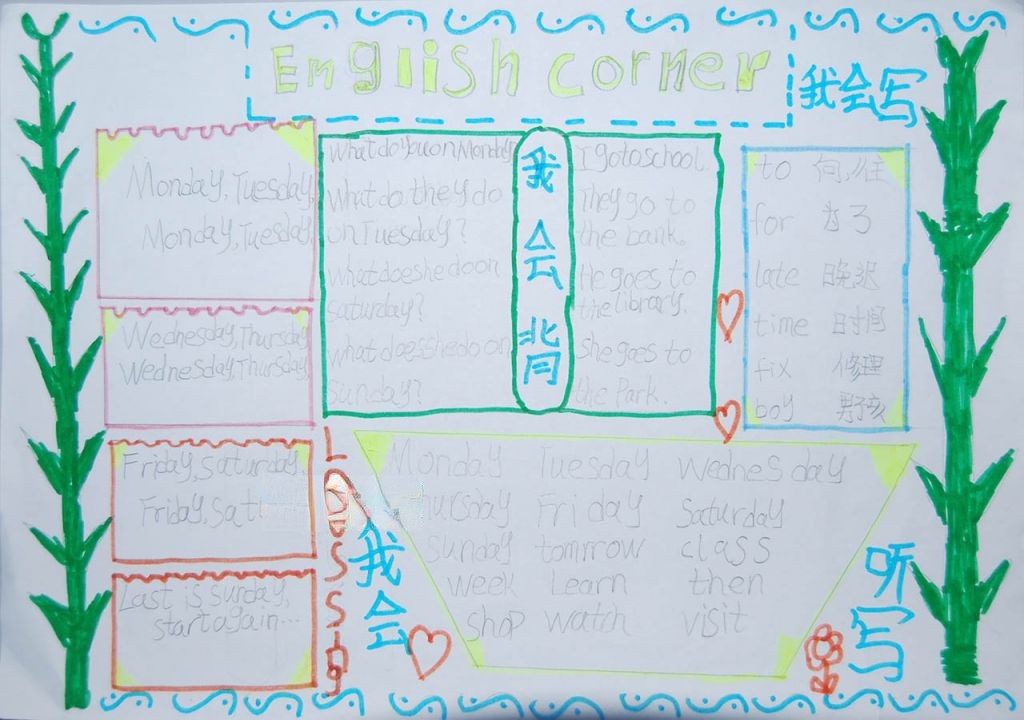 English corner
我会写
Monday, Tuesday,
Monday, Tuesday,
Wednesday, Thursday,
Wednesday, Thursday,
Friday, saturday.
Friday, sat
Last is sunday,
start again...
What do you on Monday?
What do they do
on Tuesday?
what does he do on
saturday?
what does she do on
sunday?
我会背
I go to school.
They go to
the bank.
He goes to
the library.
she goes to
the Park.
to 向,往
for 为了
late 晚迟
time 时间
fix 修理
boy 男孩
我会
Monday Tuesday Wednesday
hursday Friday Saturday
Sunday tomrrow class
week Learn then
shop watch visit
听写